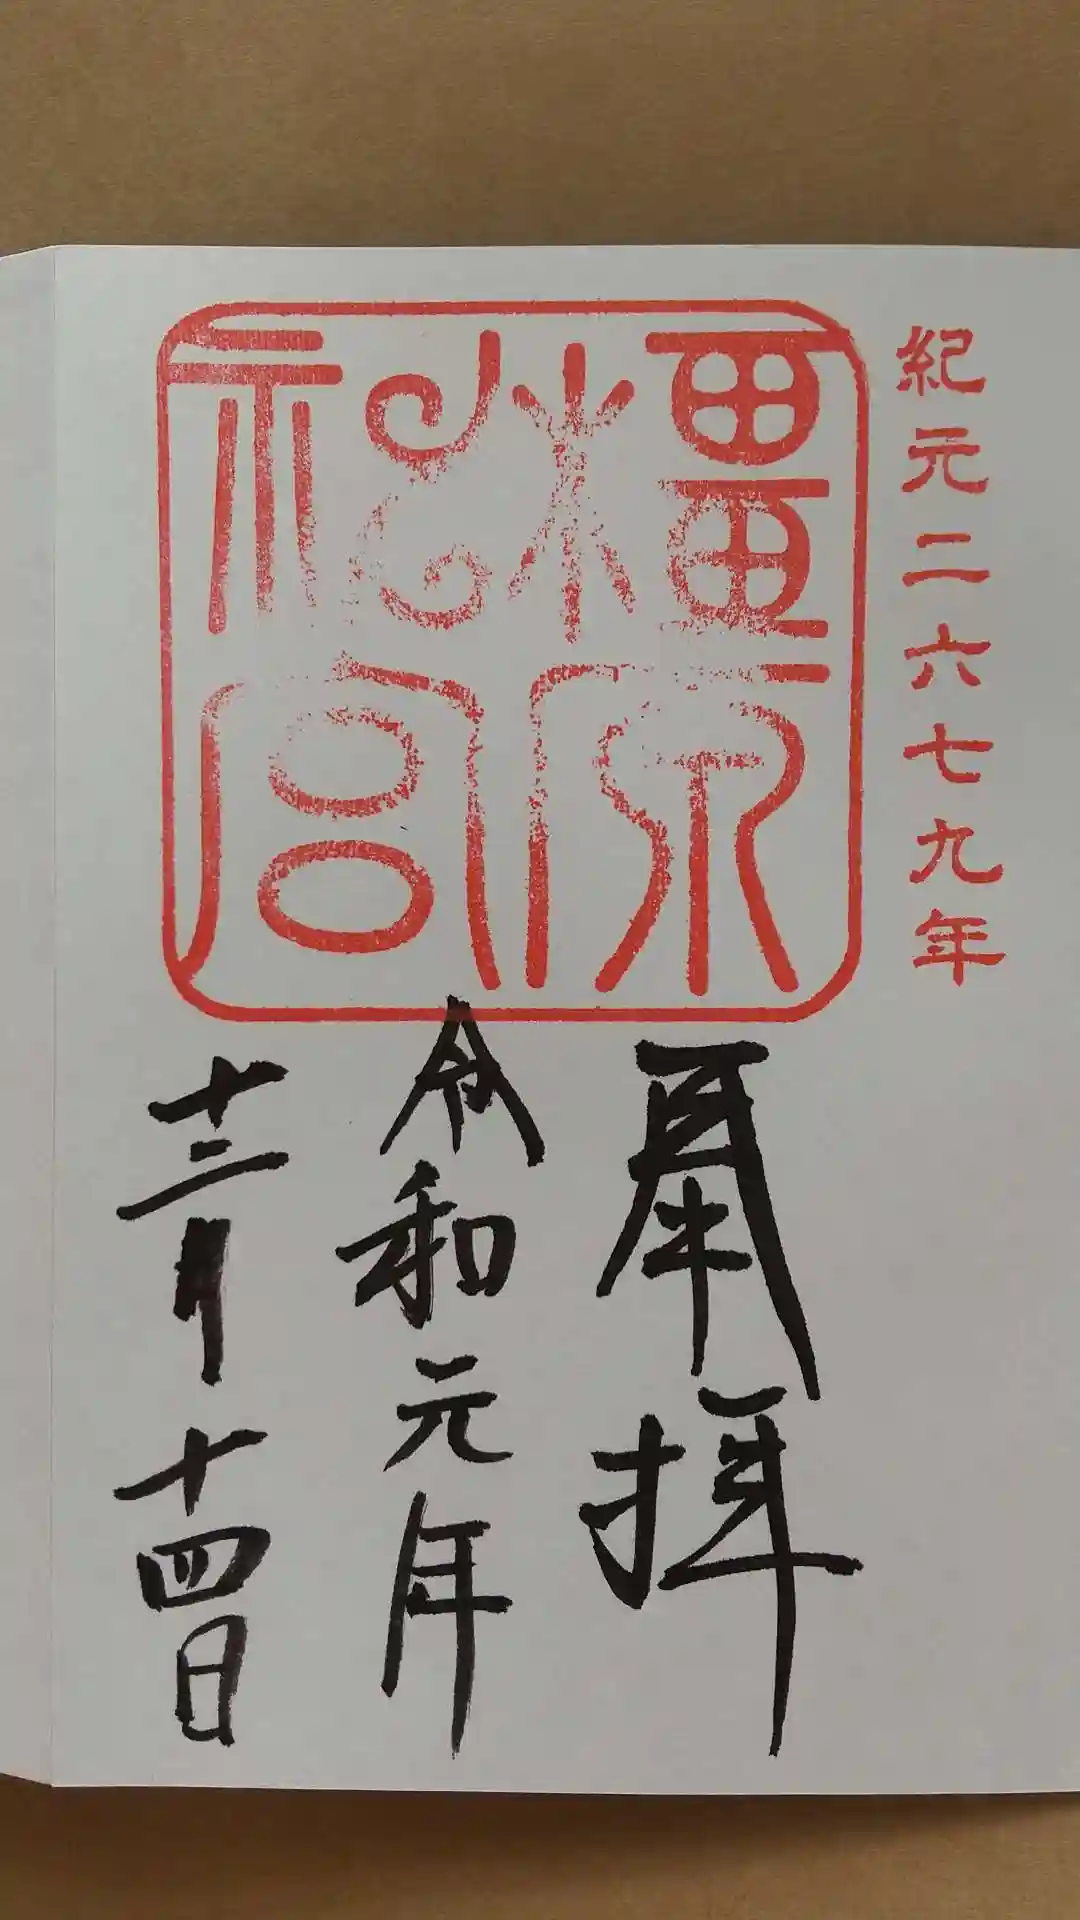 紀元二六七九年
橿原
神宮
奉拝
令和元年
十二月十四日